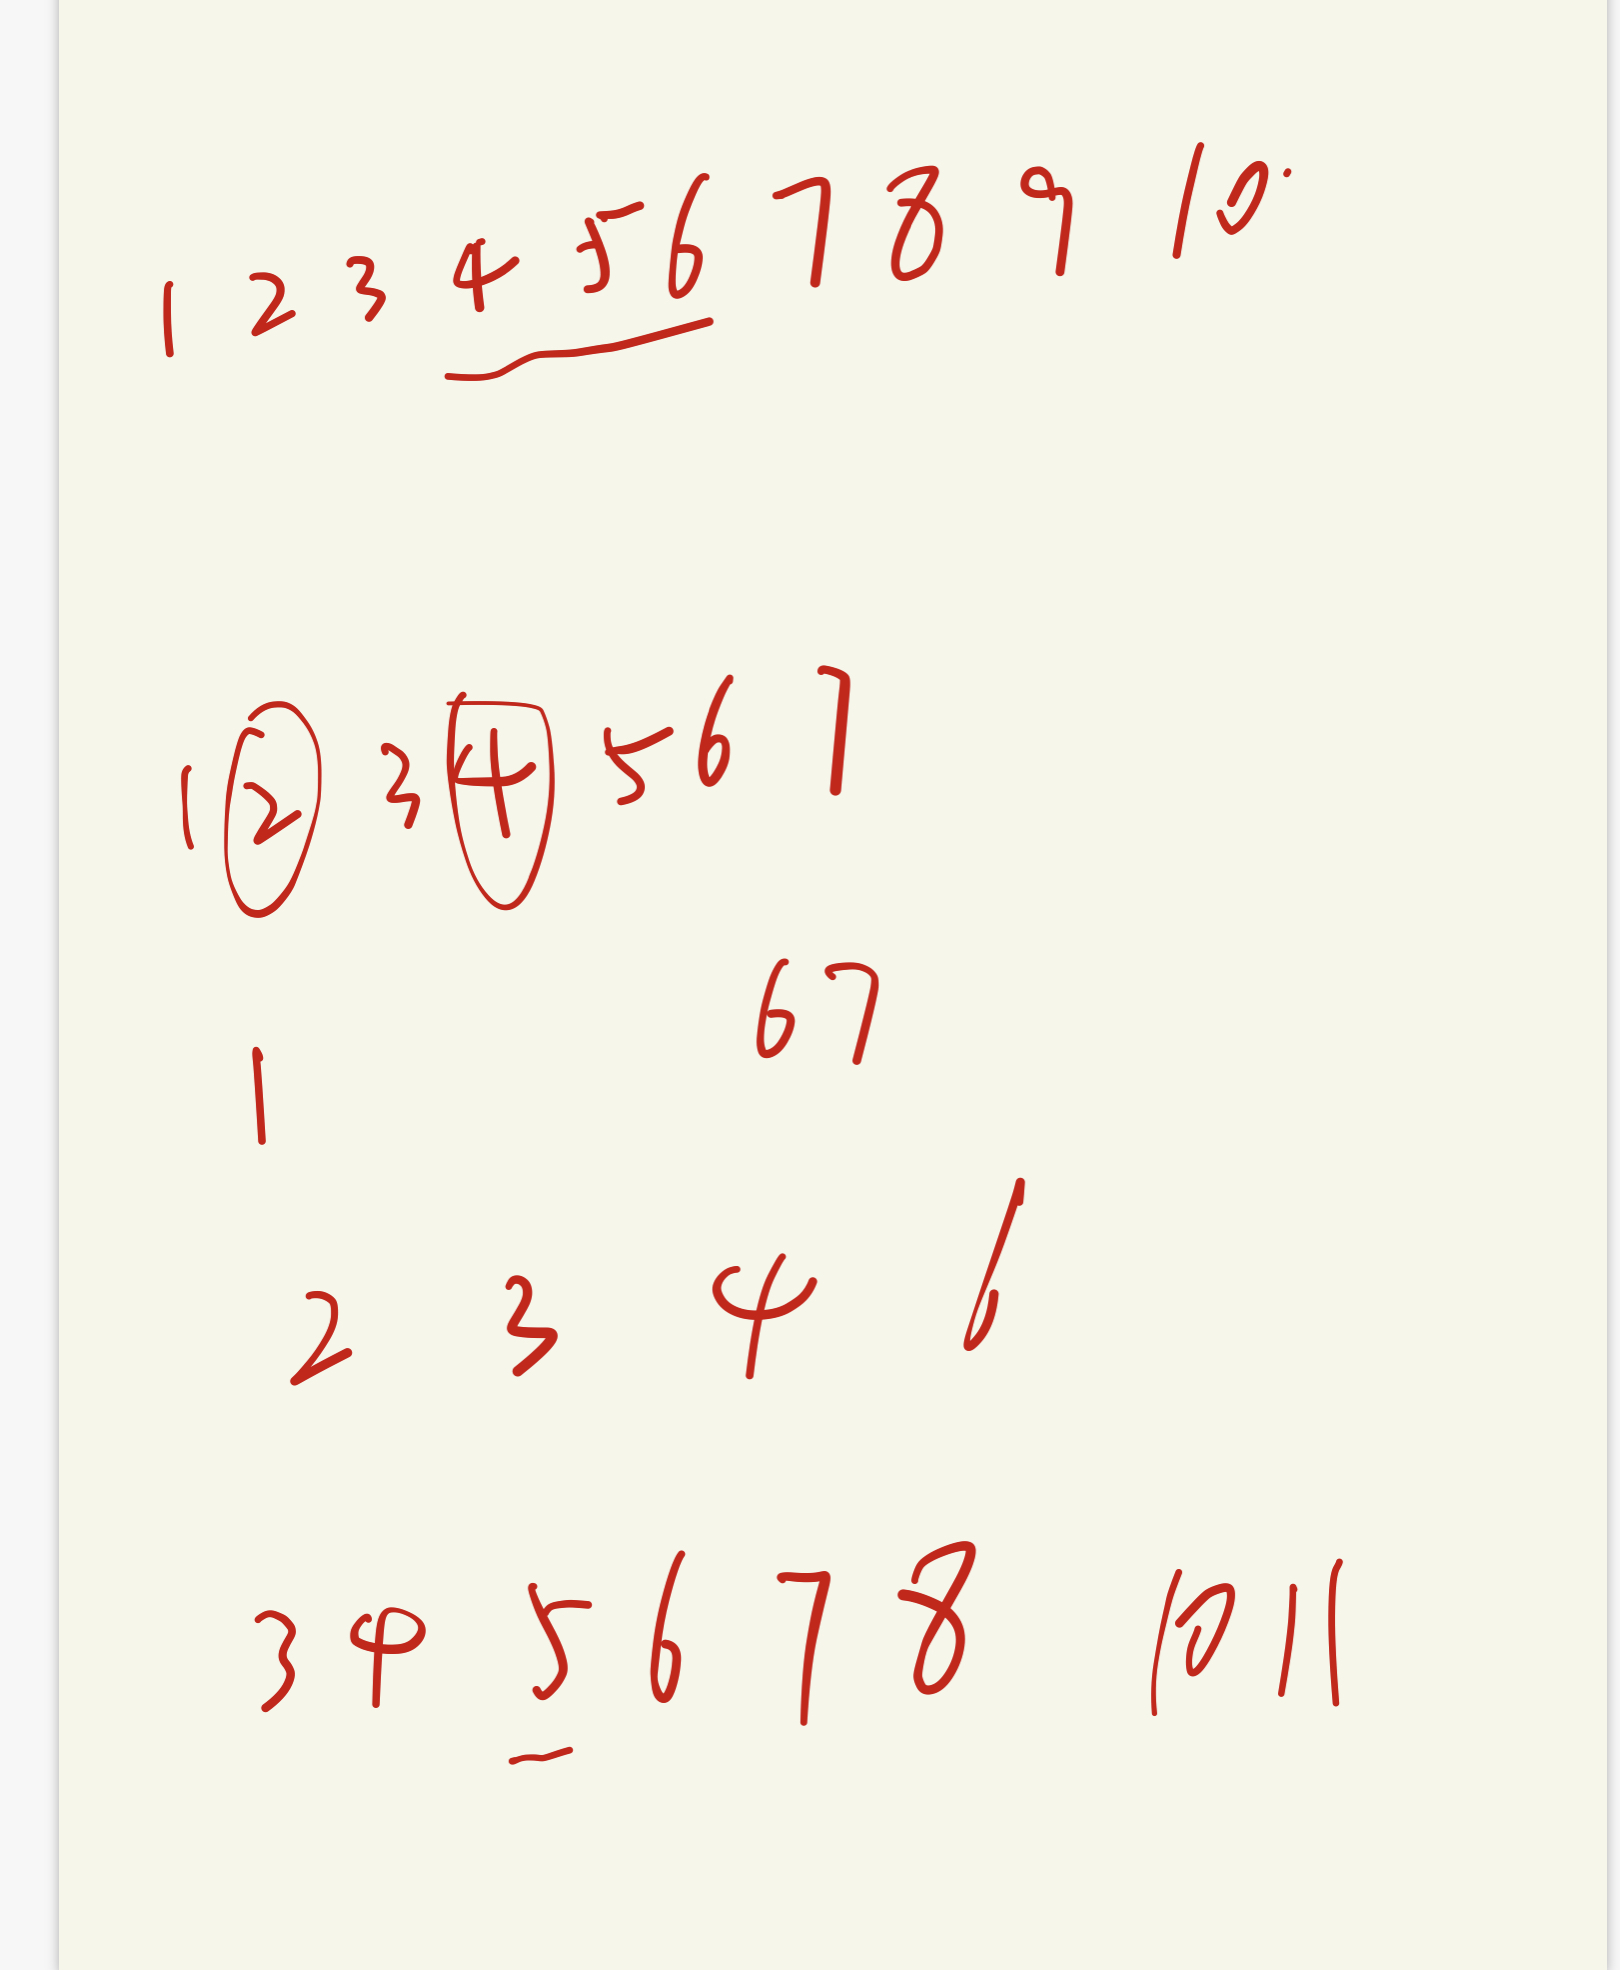 1 2 3 4 5 6 7 8 9 10.
1 2 3 4 5 6 7
6 7
1
2 3 4 6
3 4 5 6 7 8 10 11